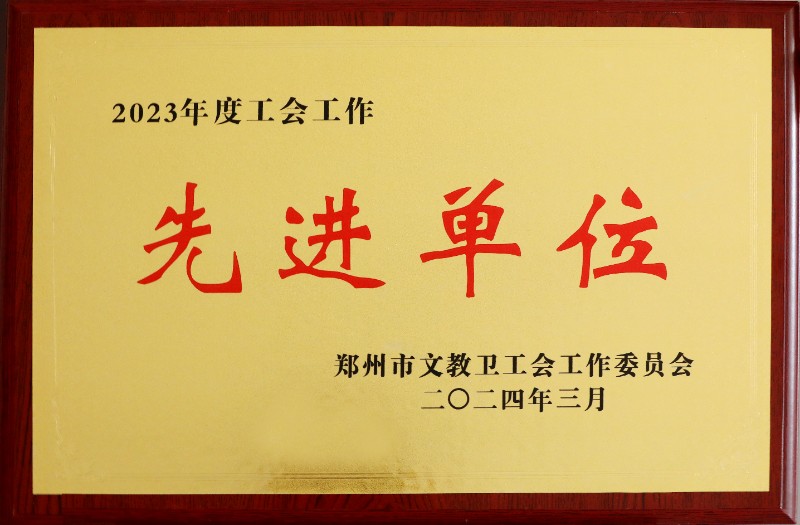 2023年度工会工作
先进单位
郑州市文教卫工会工作委员会
二〇二四年三月